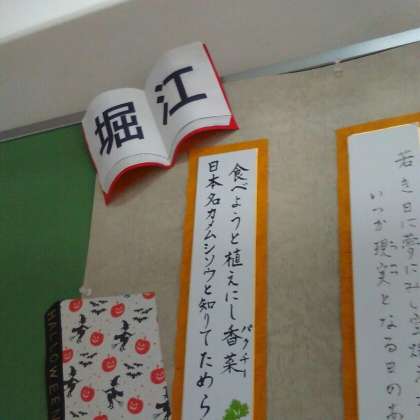 堀江
食べようと植えにし香菜
パクチー
日本名カメムシソウと知りてためら
若き日に夢にみ
いつか現実となる日のあ
HALLOWEEN